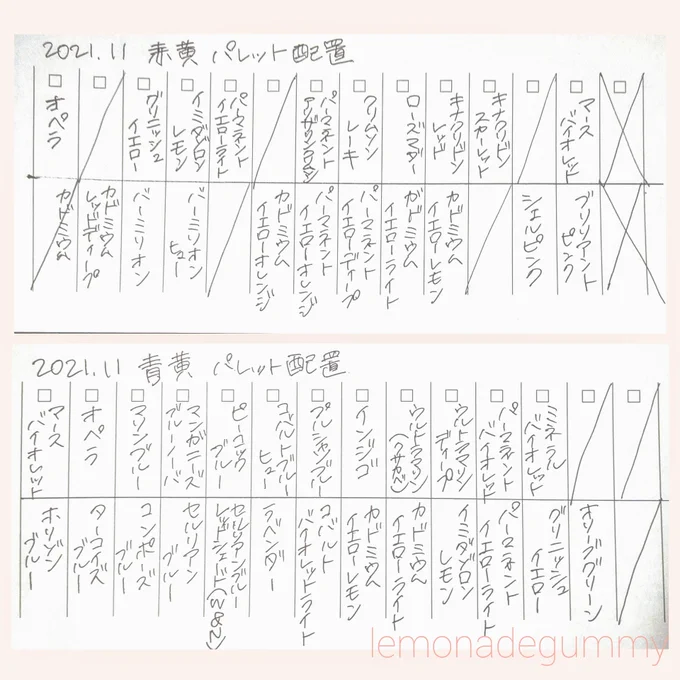 2021.11 赤黄 パレット配置
オペラ
グリニッシュ
イエロー
イミダゾロン
レモン
パーマネント
イエローライト
パーマネント
アリザリンクリムソン
クリムソン
レーキ
ローズマダー
キナクリドン
レッド
キナクリドン
スカーレット
マース
バイオレット
カドミウム
カドミウム
レッドディープ
バーミリオン
バーミリオン
ヒュー
カドミウム
イエローオレンジ
パーマネント
イエローオレンジ
パーマネント
イエローディープ
カドミウム
イエローライト
カドミウム
イエローレモン
シェルピンク
ブリリアント
ピンク
2021.11 青黄 パレット配置
マース
バイオレット
オペラ
マリンブルー
マンガニーズ
ブルーノーバ
ピーコック
ブルー
コバルトブルー
ヒュー
プルシャンブルー
インジゴ
ウルトラマリン
(クサカベ)
ウルトラマリン
ディープ
パーマネント
バイオレット
ミネラル
バイオレット
ホリゾン
ブルー
ターコイズ
ブルー
コンポーズ
ブルー
セルリアン
ブルー
セルリアンブルー
レッドシェード(W&N)
ラベンダー
コバルト
バイオレットライト
カドミウム
イエローレモン
カドミウム
イエローライト
イミダゾロン
レモン
パーマネント
イエローライト
グリニッシュ
イエロー
オリーブグリーン
lemonadegummy